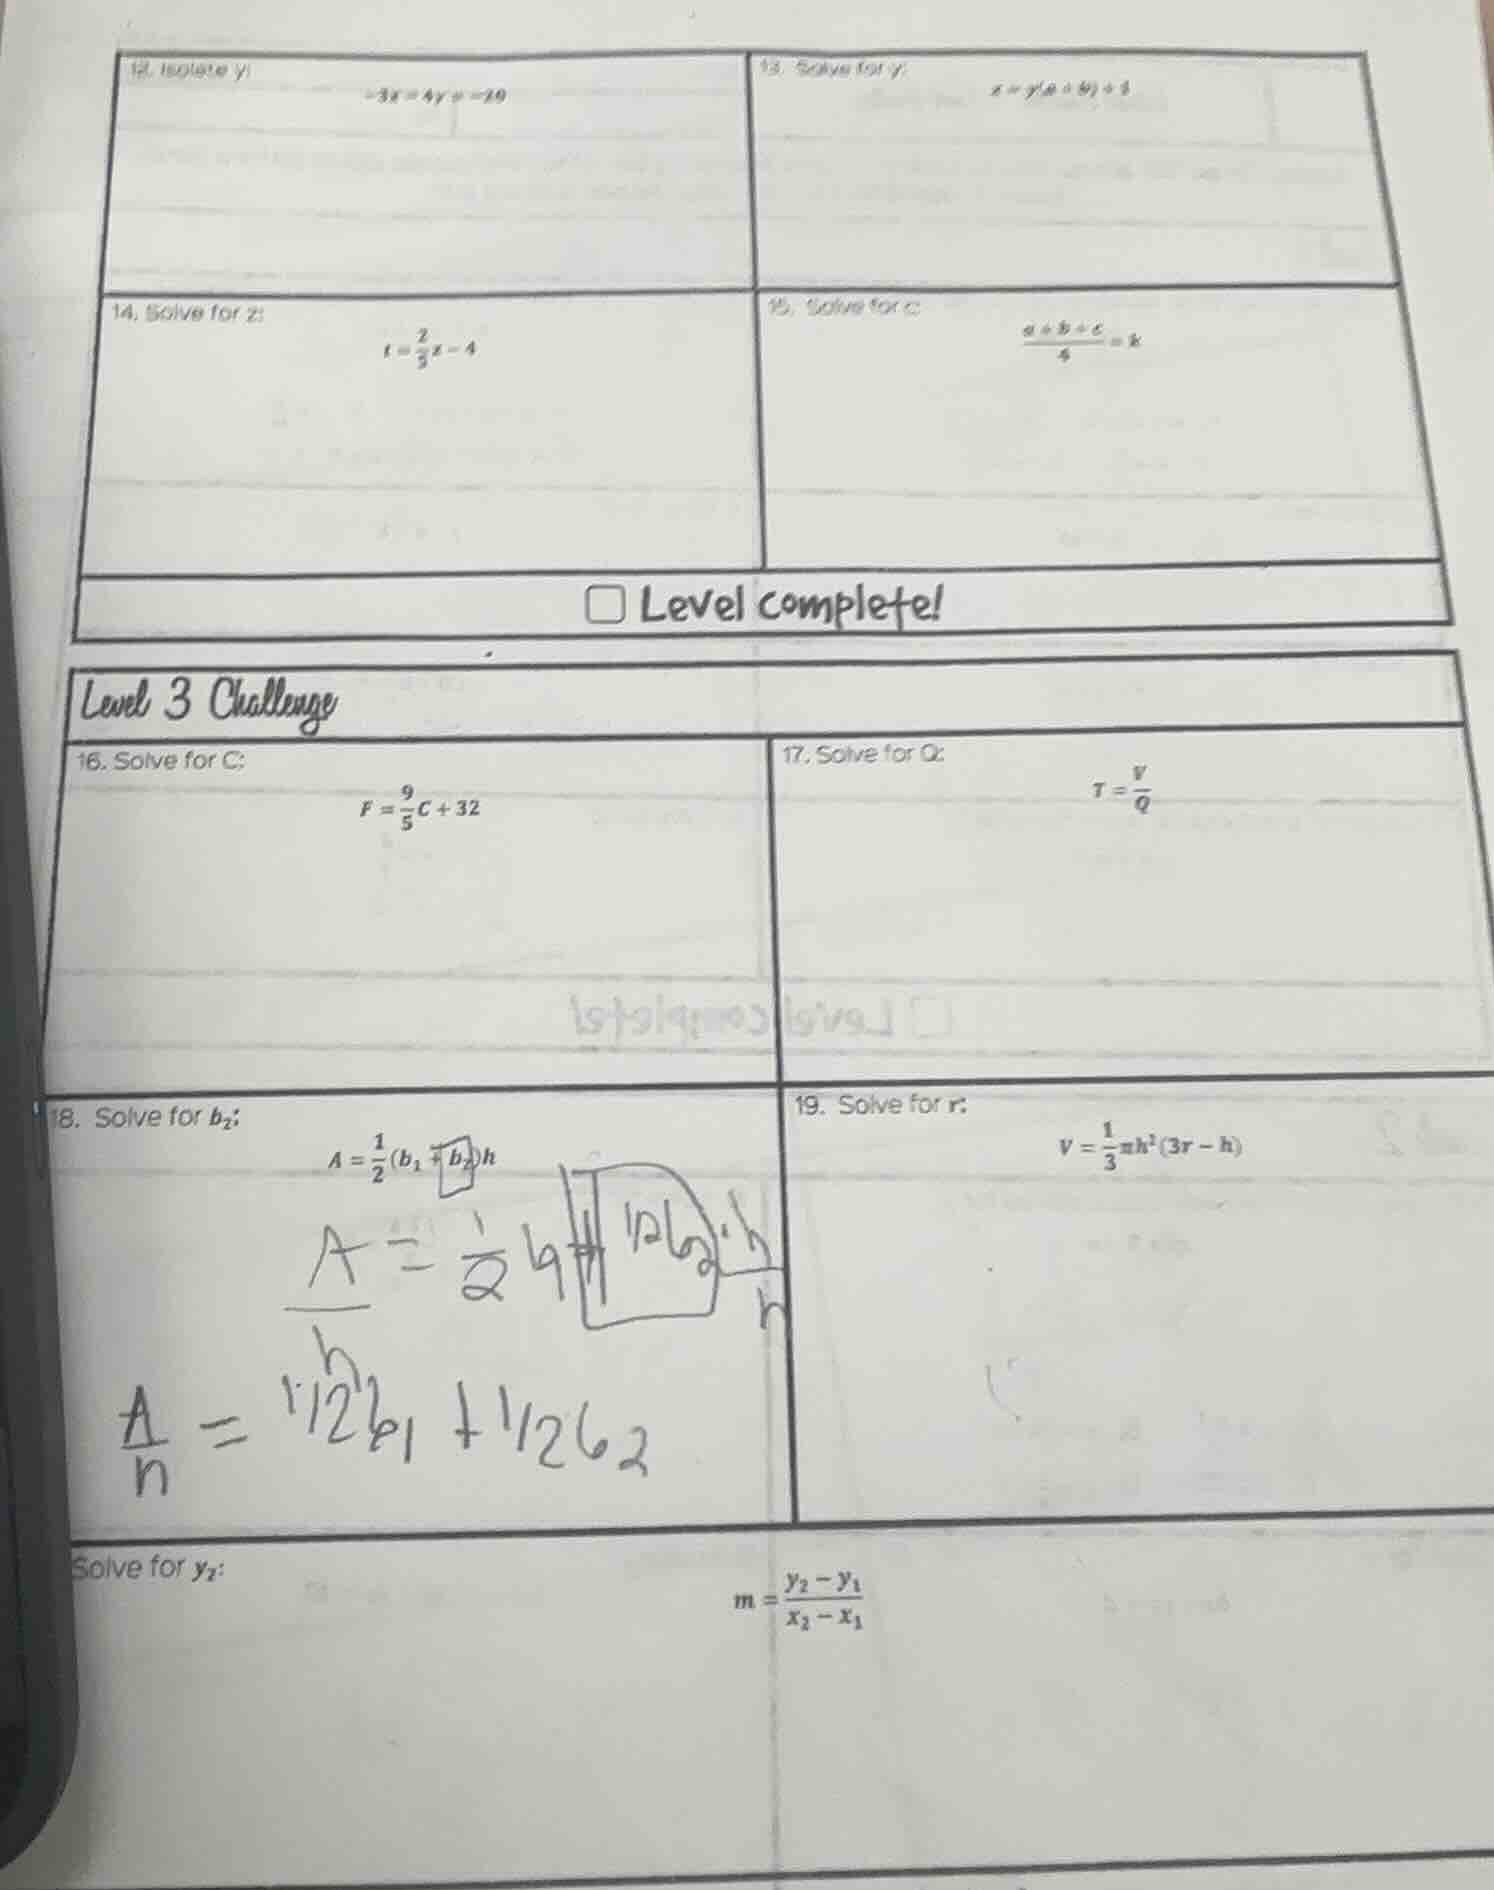 12. Isolate y:
-3x - 4y = -20
13. Solve for y:
14. Solve for z:
t = 2/5 z - 4
15. Solve for c:
(a + b + c)/4 = k
☐ Level complete!
Level 3 Challenge
16. Solve for C:
F = 9/5 C + 32
17. Solve for Q:
T = V/Q
18. Solve for b₂:
A = 1/2 (b₁ + b₂)h
A/h = 1/2 b + 1/2b₂ · h/h
A/h = 1/2b₁ + 1/2b₂
19. Solve for r:
V = 1/3 πh²(3r - h)
Solve for y₂:
m = (y₂ - y₁)/(x₂ - x₁)